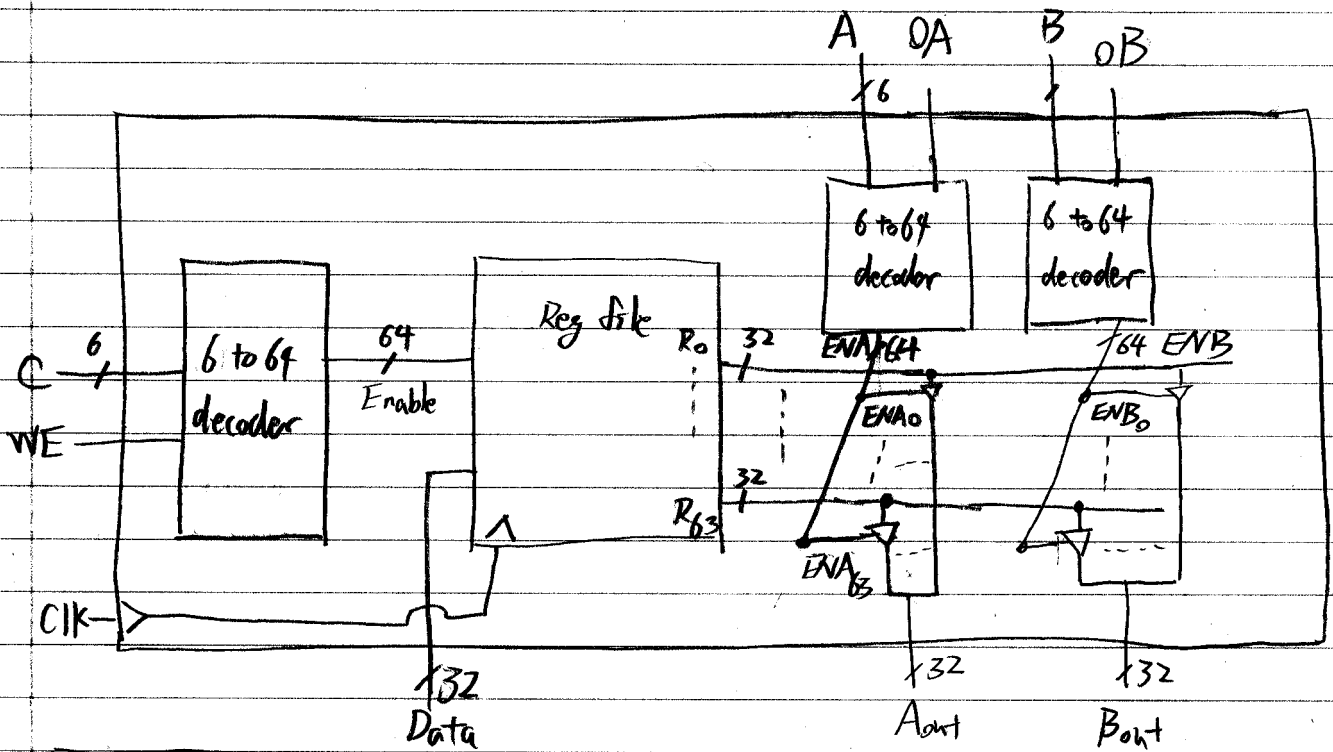 A OA B OB
6
6 to 64
decoder
6 to 64
decoder
C 6
WE
6 to 64
decoder
64
Enable
Reg file
R0 32
R63 32
ENA 64
ENA0
ENA63
64 ENB
ENB0
Clk
32
Data
32
Aout
32
Bout